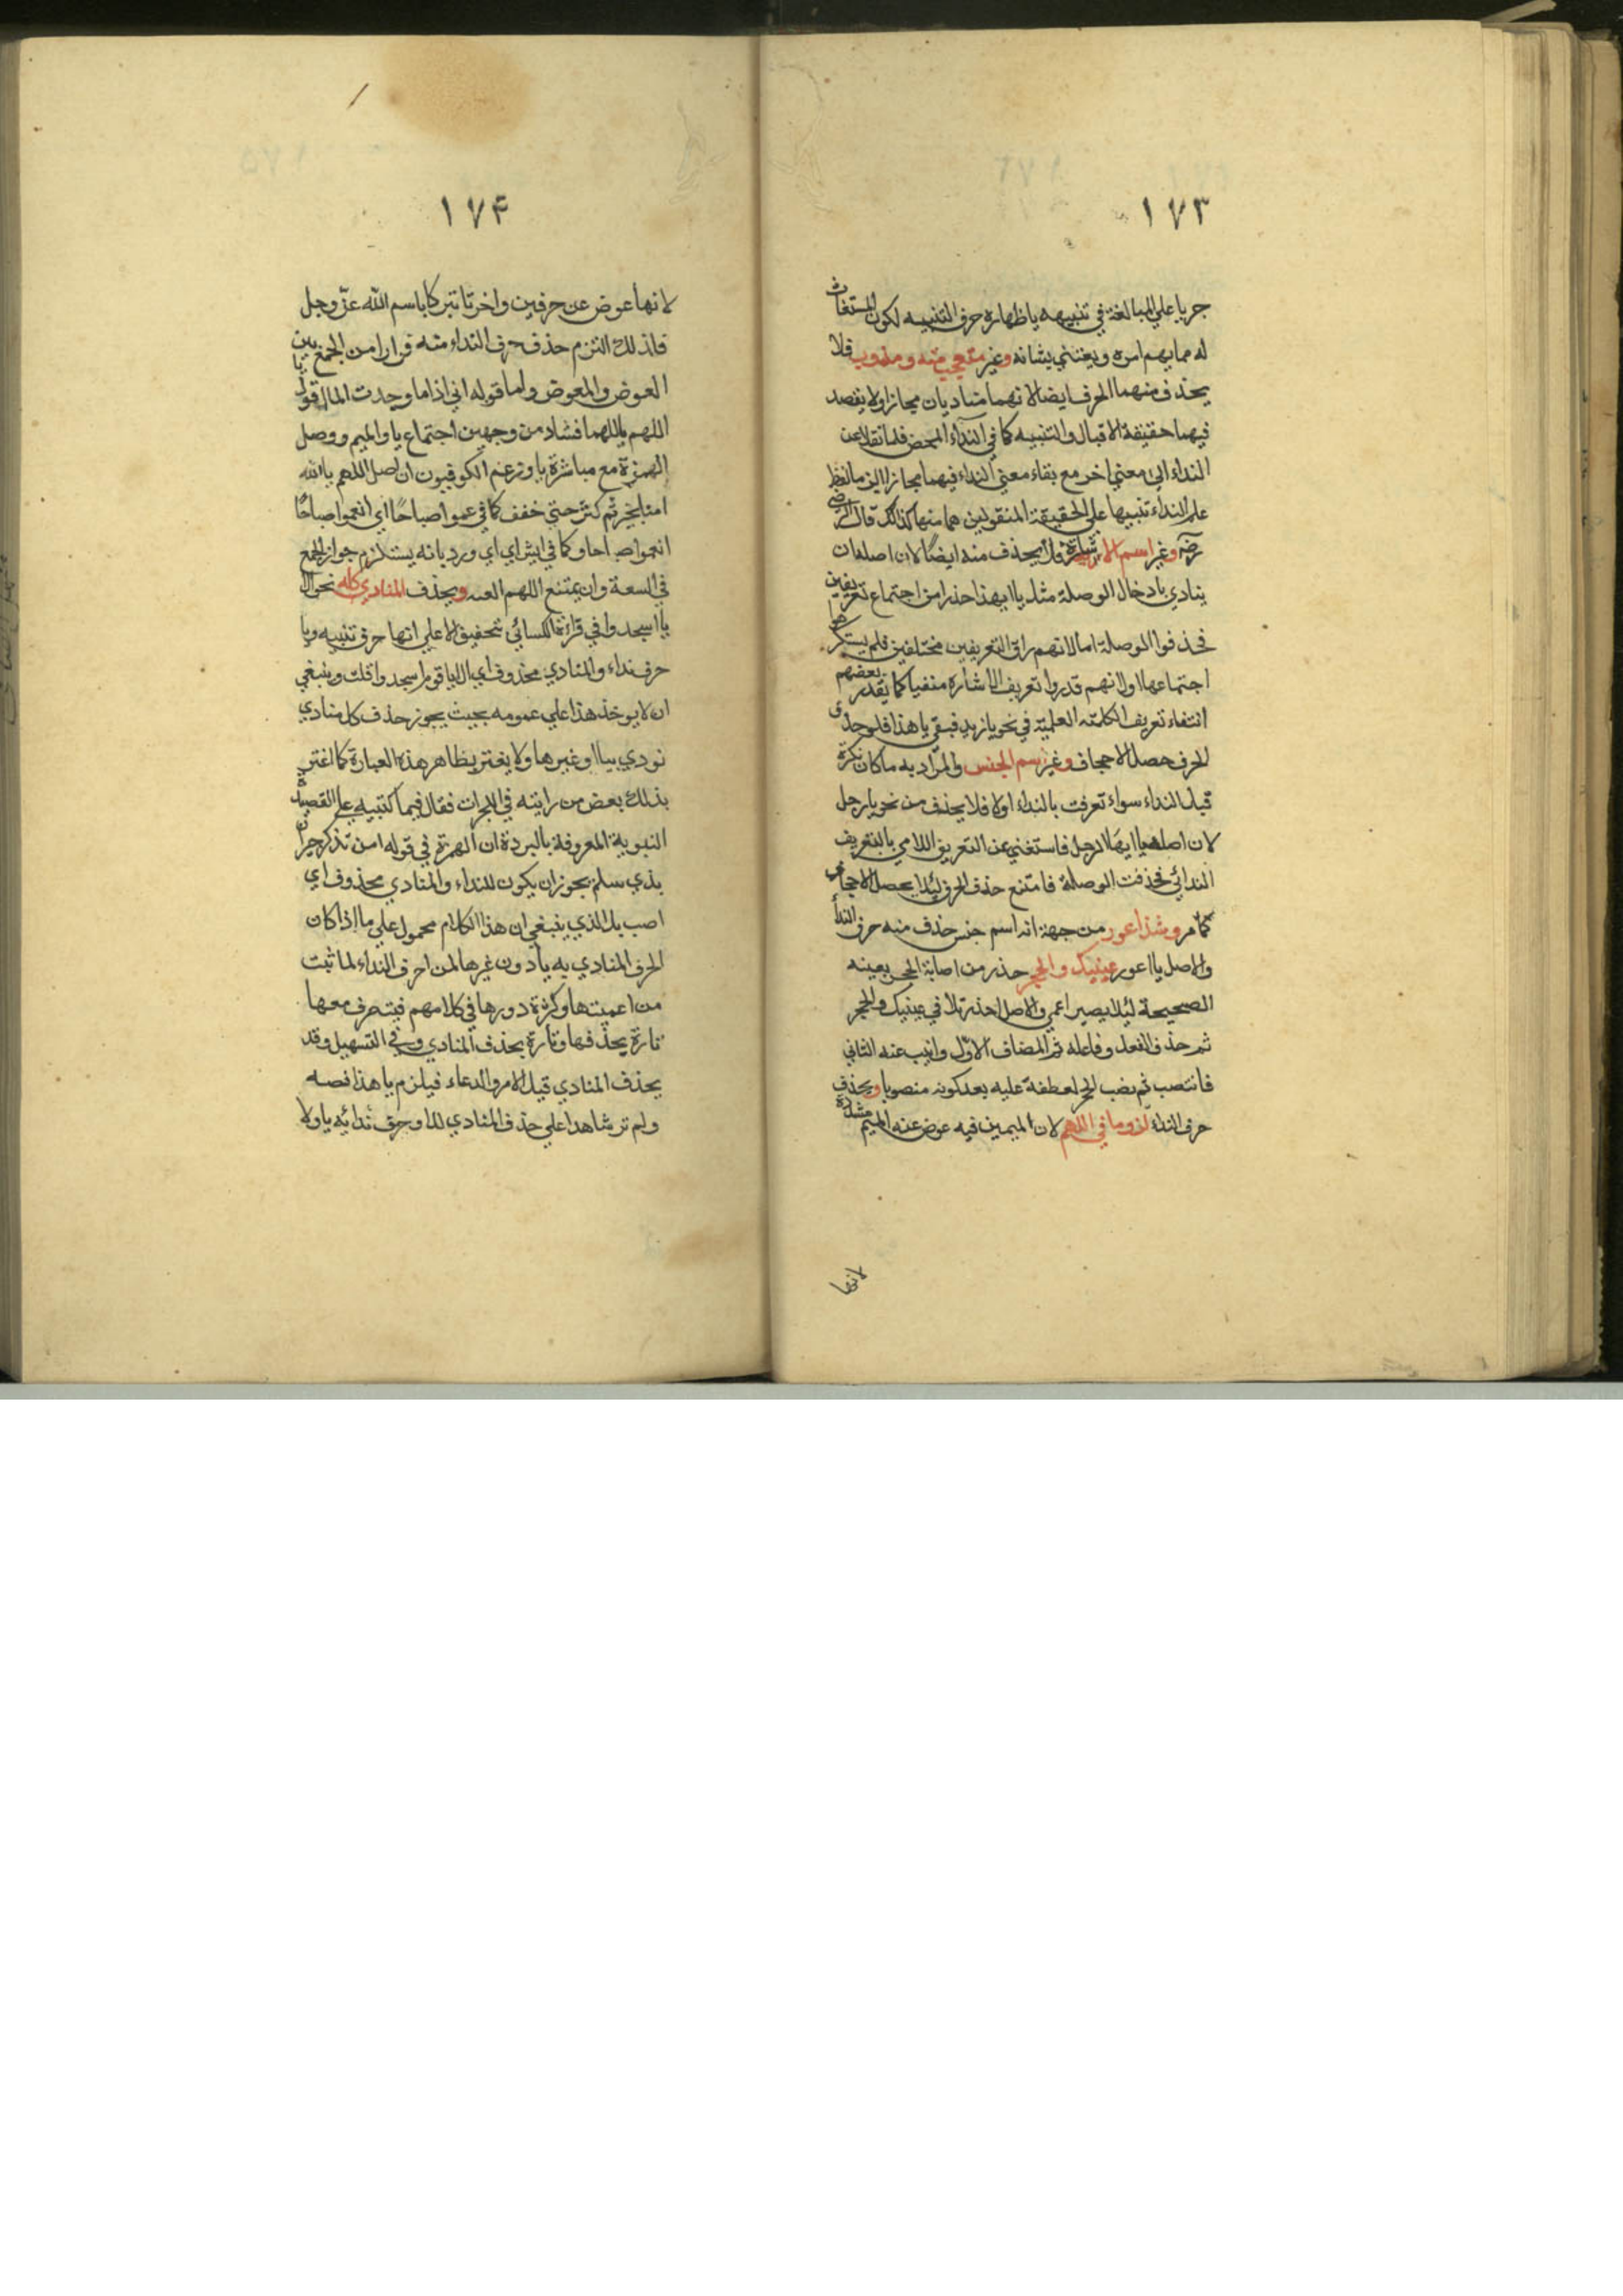 ١٧٣
جريا علي المبالغة في تنبيهه باظهاره حرف التنبيه لكون المستغاث
له مما يهم امره ويعتني بشانه وغير متعجب منه ومندوب فلا
يحذف منهما الحرف ايضا لانهما مناديان مجازا ولا يقصد
فيهما حقيقة الاقبال والتنبيه كما في النداء المحض فلما نقلا عن
النداء الي معني اخر مع بقاء معني النداء فيهما مجازا الزما لفظ
علم النداء تنبيها علي الحقيقة المنقولين هما منها كذلك قال الرضي
رضه وغير اسم الاشارة فلا يحذف منه ايضًا لان اصله ان
ينادي بادخال الوصلة مثل يا ايهذا حذرا من اجتماع تعريفين
فحذفوا الوصلة اما لانهم راو التعريفين مختلفين فلم يستكرهوا
اجتماعها اولانهم قدروا تعريف الاشارة منفيا كما يقدر بعضهم
انتفاء تعريف الكلمة العلمية في نحو يا زيد فبقي يا هذا فلو حذف
الحرف حصل الاجحاف وغير اسم الجنس والمراد به ما كان نكرة
قبل النداء سواء تعرفت بالنداء اولا فلا يحذف من نحو يا رجل
لان اصله يا ايها الرجل فاستغني عن التعريف اللامي بالتعريف
الندائي فحذفت الوصلة فامتنع حذف الحرف لئلا يحصل الاجحاف
كما مر وشذ اعور من جهة انه اسم جنس حذف منه حرف النداء
والاصل يا اعور عينيك والحجر حذر من اصابة الحجر بعينه
الصحيحة ليلا يصير اعمي والاصل احذر تلافي عينيك والحجر
ثم حذف الفعل وفاعله ثم المضاف الاول وانيب عنه الثاني
فانتصب ثم نصب الحجر لعطفه عليه بعد كونه منصوبا ويحذف
حرف النداء لزوما في اللهم لان الميمين فيه عوض عنه الميم مشددة
لانها
١٧۴
لانها عوض عن حرفين واخرتا تبركا باسم الله عزّ وجل
فلذلك التزم حذف حرف النداء منه فرارا من الجمع بين
العوض والمعوض واما قوله اني اذا ما وحدت الما اقول يا
اللهم يا اللهما فشاذ من وجهين اجتماع يا والميم ووصل
الهمزة مع مباشرة يا وزعم الكوفيون ان اصل اللهم يا الله
امنا بخير ثم كثر حتي خفف كما في عموا صباحًا اي انعموا صباحًا
انعموا صباحا وكما في ايش اي اي ورد بانه يستلزم جواز الجمع
في السعة وان يمتنع اللهم العنه ويحذف المنادي كله نحو الا
يا اسجدوا في قرائة الكسائي بتحفيق الا علي انها حرف تنبيه ويا
حرف نداء والمنادي محذوف اي الا يا قوم اسجدوا قلت وينبغي
ان لا يوخذ هذا علي عمومه بحيث يجوز حذف كل منادي
نودي بيا او غيرها ولا يغتر بظاهر هذه العبارة كما اغتر
بذلك بعض من رايته في الحجرات فقال فيما كتبه علي القصيدة
النبوية المعروفة بالبردة ان الهمزة في قوله امن تذكر جيران
بذي سلم يجوز ان يكون للنداء والمنادي محذوف اي
اصب بل الذي ينبغي ان هذا الكلام محمول علي ما اذا كان
الحرف المنادي به يا دون غيرها من احرف النداء لما ثبت
من اعميتها وكثرة دورها في كلامهم فيتصرف معها
تارة بحذفها وتارة بحذف المنادي وفي التسهيل وقد
يحذف المنادي قبل الامر والدعاء فيلزم يا هذا نصه
ولم نر شاهدا علي حذف المنادي للا وحرف ندائه يا ولا